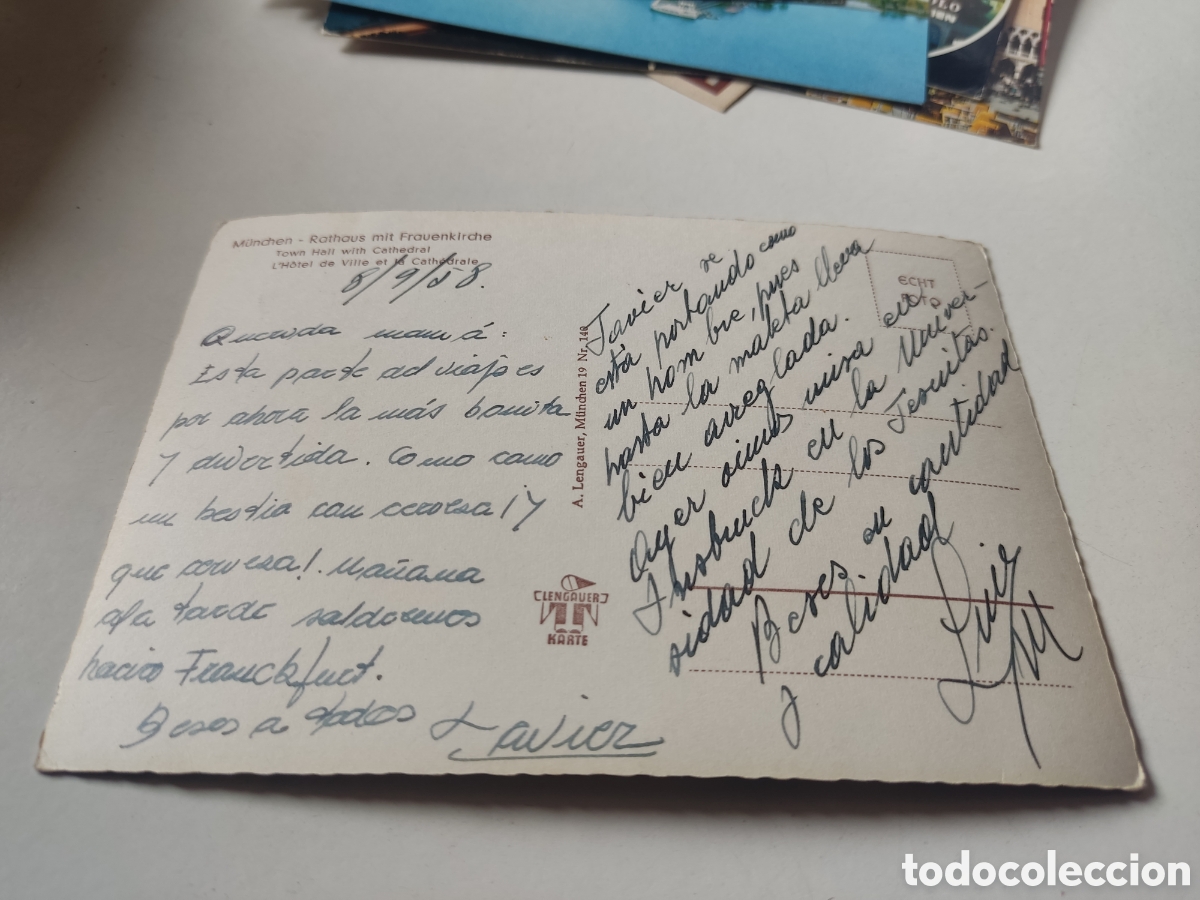 München - Rathaus mit Frauenkirche
Town Hall with Cathedral
L'Hôtel de Ville et la Cathédrale
8/9/58.
Querida mamá:
Esta parte del viaje es
por ahora la más bonita
y divertida. Como como
un bestia con cervesa ¡Y
que cervesa!. Mañana
a la tarde saldremos
hacia Franckfurt.
Besos a todos
Javier
A. Lengauer, München 19 Nr. 140
LENGAUER
KARTE
ECHT
FOTO
Javier se
está portando como
un hombre, pues
hasta la maleta lleva
bien arreglada.
Ayer oimos misa en
Insbruck en la Univer-
sidad de los Jesuitas.
Besos en cantidad
y calidad
Luis
todocoleccion